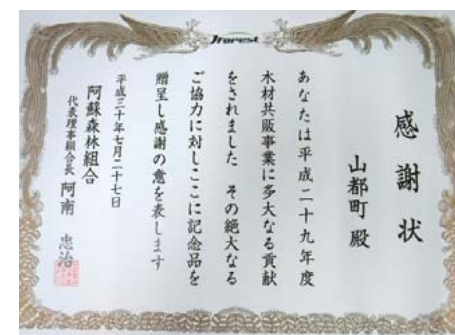 Jforest
感謝状
山都町 殿
あなたは平成二十九年度
木材共販事業に多大なる貢献
をされました その絶大なる
ご協力に対しここに記念品を
贈呈し感謝の意を表します
平成三十年七月二十七日
阿蘇森林組合
代表理事組合長 阿南 忠治